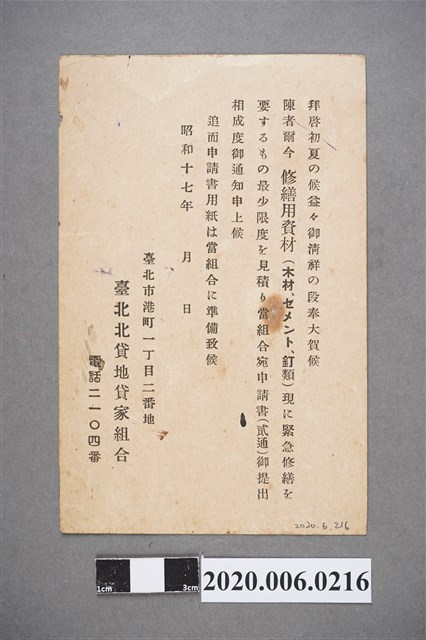 拜啓初夏の候益々御淸祥の段奉大賀候
陳者爾今修繕用資材(木材、セメント、釘類)現に緊急修繕を
要するもの最少限度を見積り當組合宛申請書(貳通)御提出
相成度御通知申上候
追而申請書用紙は當組合に準備致候
昭和十七年　月　日
臺北市港町一丁目二番地
臺北北貸地貸家組合
電話二一〇四番
2020.6.216
1cm
3cm
2020.006.0216